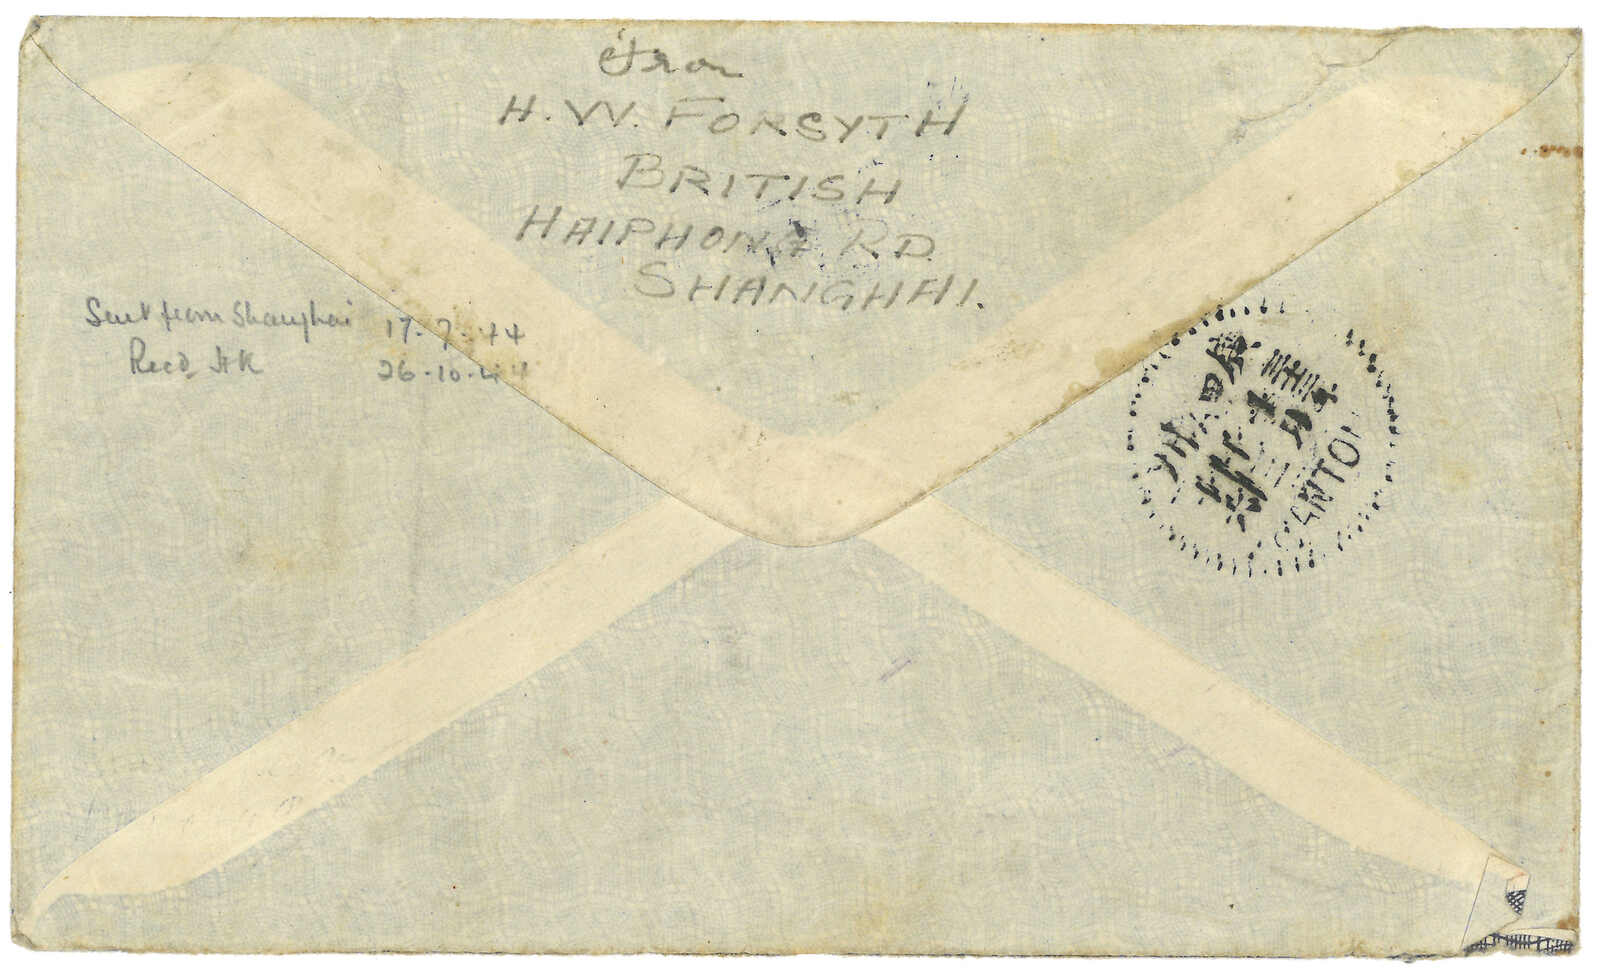 From
H. W. FORSYTH
BRITISH
HAIPHONG RD.
SHANGHAI.
Sent from Shanghai 17-7-44
Recd HK 26-10-44
CANTON